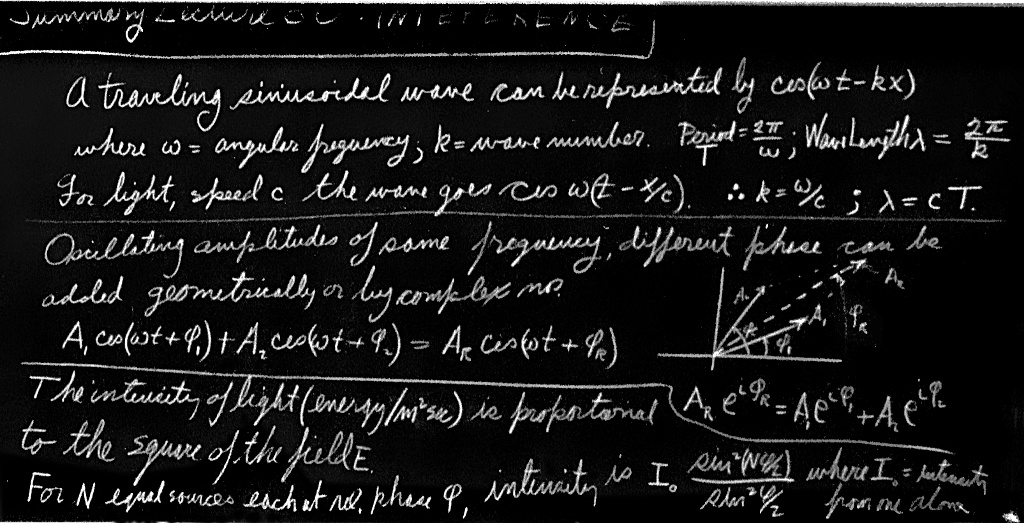 Summary Lecture 30 . INTEFERENCE
A traveling sinusoidal wave can be represented by cos(ωt-kx)
where ω = angular frequency, k = wave number. Period T = 2π/ω ; Wavelength λ = 2π/k
For light, speed c the wave goes cos ω(t - x/c). ∴ k = ω/c ; λ = c T.
Oscillating amplitudes of same frequency, different phase can be
added geometrically or by complex nos.
A₁ cos(ωt + φ₁) + A₂ cos(ωt + φ₂) = A_R cos(ωt + φ_R)
A₂ A_R A₁ φ_R φ₂ φ₁
The intensity of light (energy/m² sec) is proportional
to the square of the field E.
A_R e^{iφ_R} = A₁e^{iφ₁} + A₂e^{iφ₂}
For N equal sources each at rel. phase φ, intensity is I₀ sin²(Nφ/2)/sin² φ/2 where I₀ = intensity
from one alone